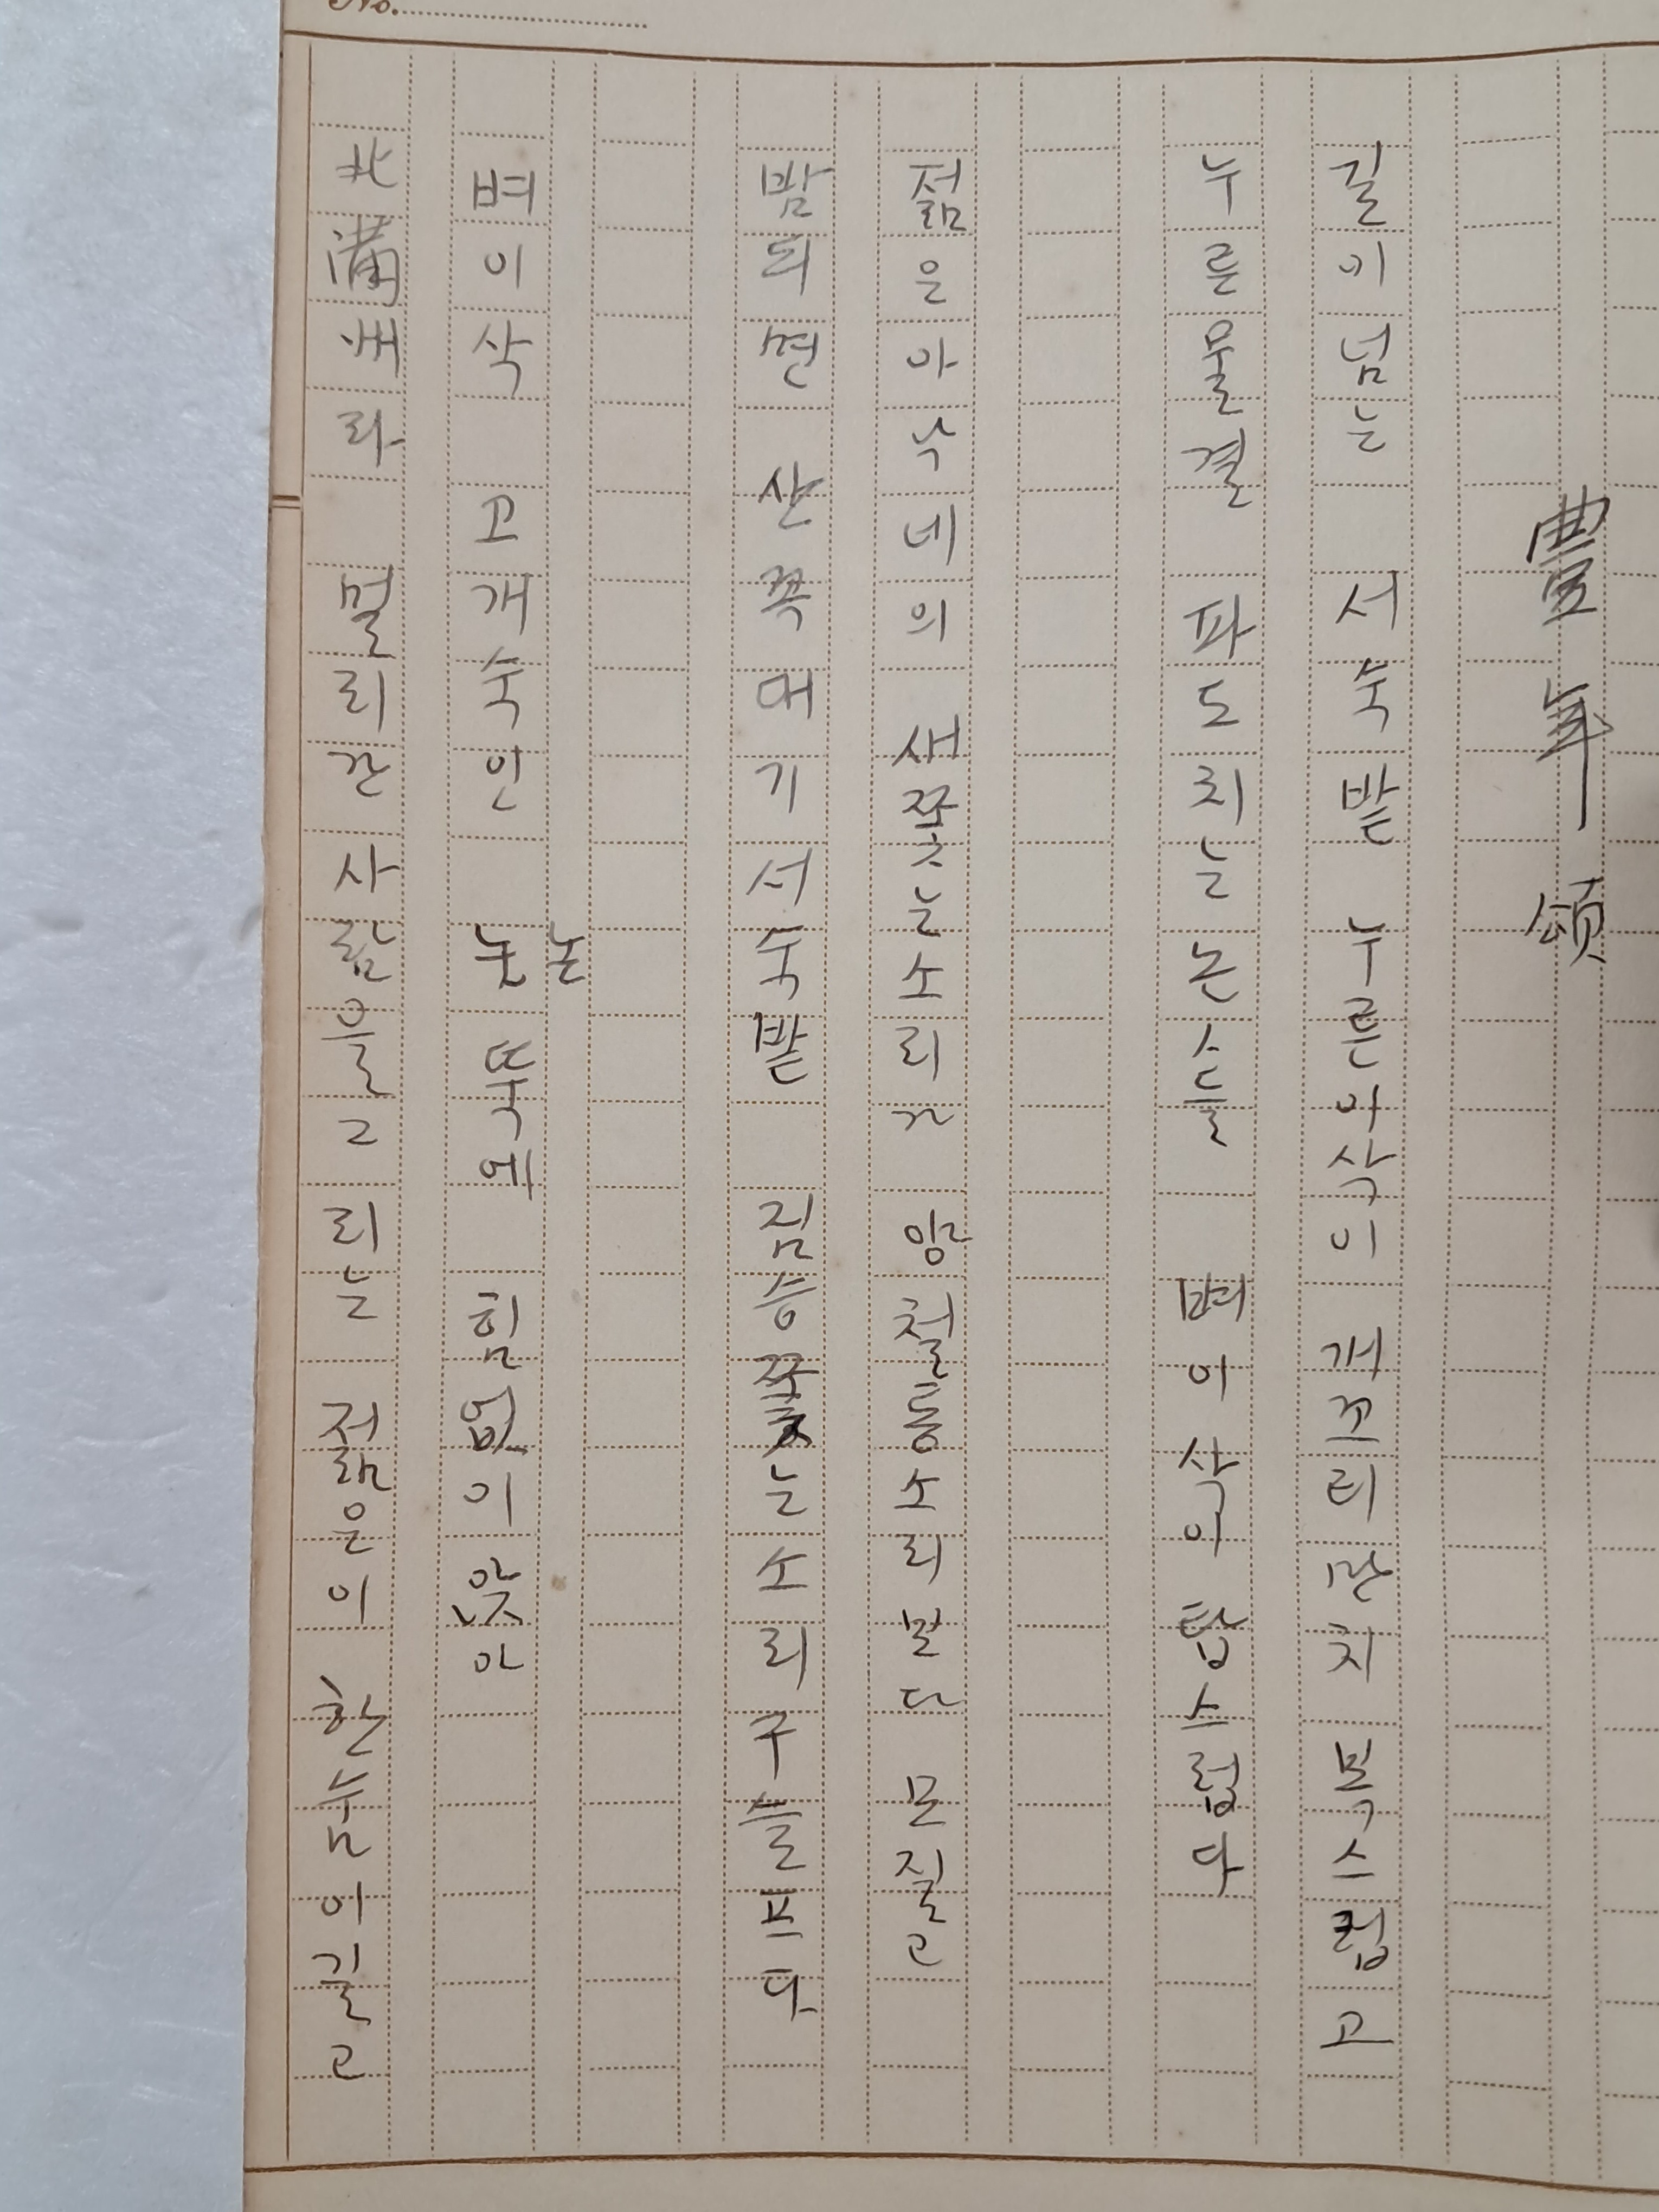 No.
豊年頌
길이넘는 서숙밭 누른이삭이 개꼬리만치 복스럽고
누른물결 파도치는논ㅅ들 벼이삭이 탐스럽다
젊은아낙네의 새쫓는소리가 양철통소리보다 모질고
밤되면 산꼭대기서숙밭 짐승쫓는소리구슬프다
벼이삭 고개숙인 논뚝에 힘없이앉아
논
北満州라 멀리간사람을그리는 젊은이 한숨이길고